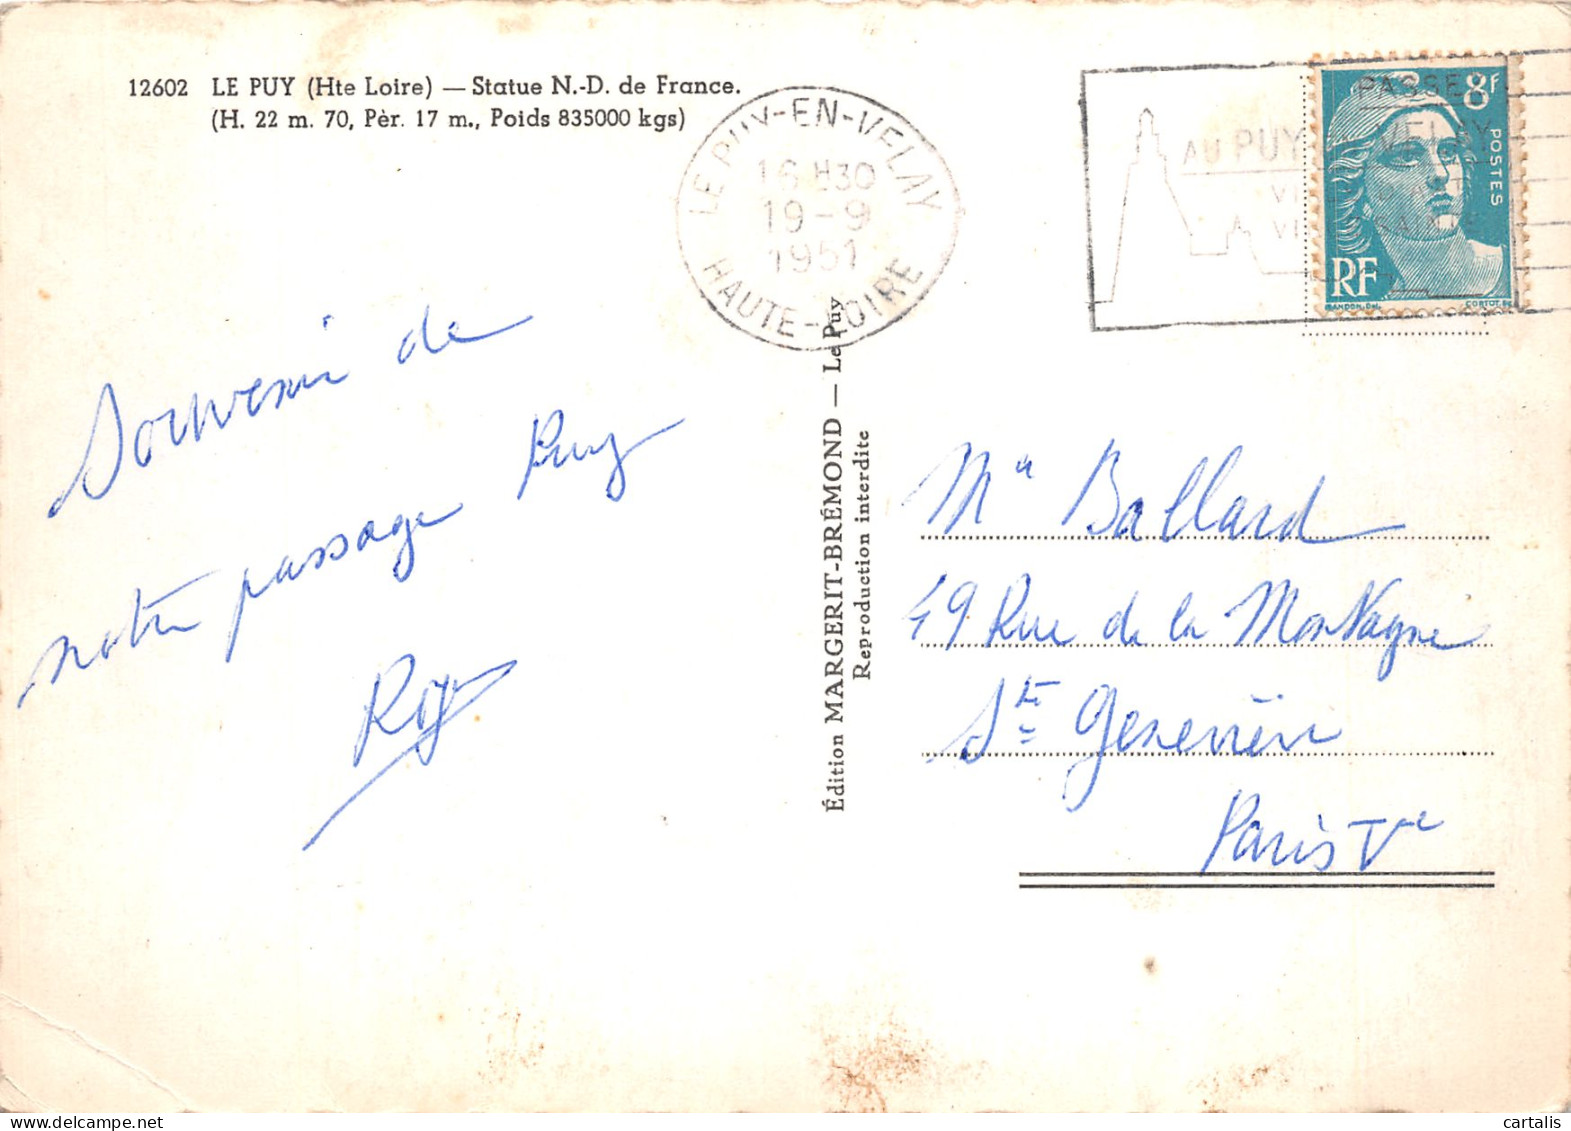 12602 LE PUY (Hte Loire) — Statue N.-D. de France.
(H. 22 m. 70, Pèr. 17 m., Poids 835000 kgs)
LE PUY-EN-VELAY
16 H30
19-9
1951
HAUTE-LOIRE
PASSEZ
AU PUY EN VELAY
8F
POSTES
RF
GANDON, Del.
CORTOT SC
Souvenir de
notre passage Puy
Roy
Édition MARGERIT-BRÉMOND — Le Puy
Reproduction interdite
Ballard
49 Rue de la Montagne
Ste Geneviève
Paris Ve
cartalis
delcampe.net